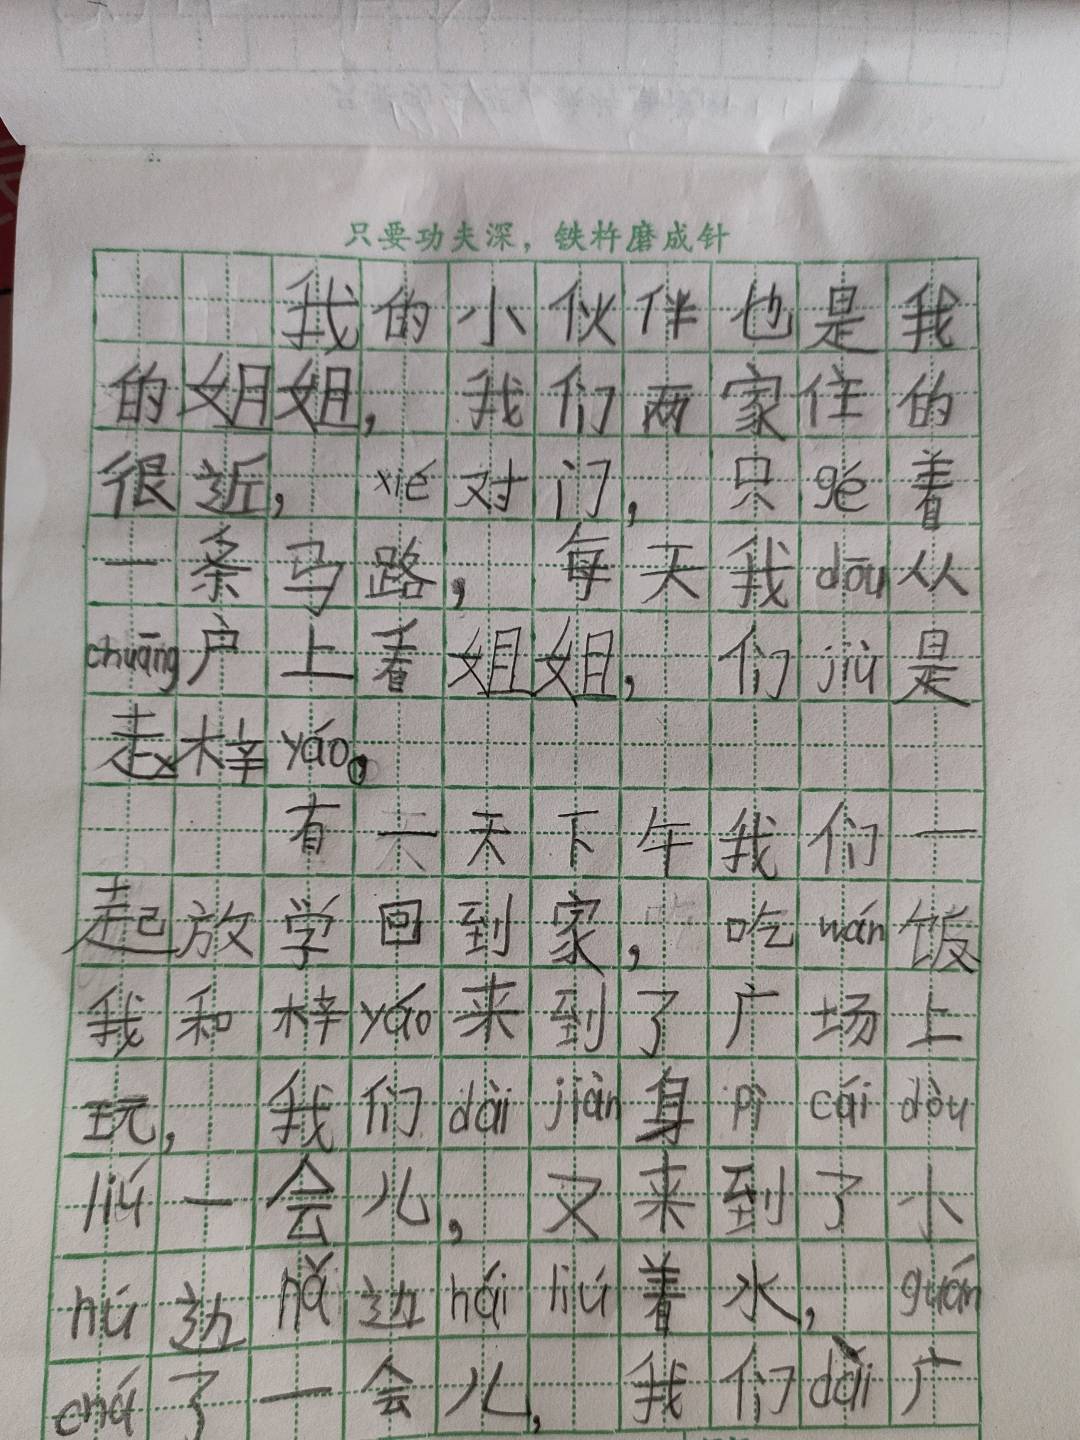 只要功夫深，铁杵磨成针
我的小伙伴也是我
的姐姐，我们两家住的
很近，xié对门，只gé着
一条马路，每天我dōu从
chuāng户上看姐姐，们jiù是
赵梓yáo。
有一天下午我们一
起放学回到家，吃wán饭
我和梓yáo来到了广场上
玩，我们dài jiàn身pì cái dòu
liú一会儿，又来到了小
hú边nǎ边hái liú着水，guán
chá了一会儿，我们dài广